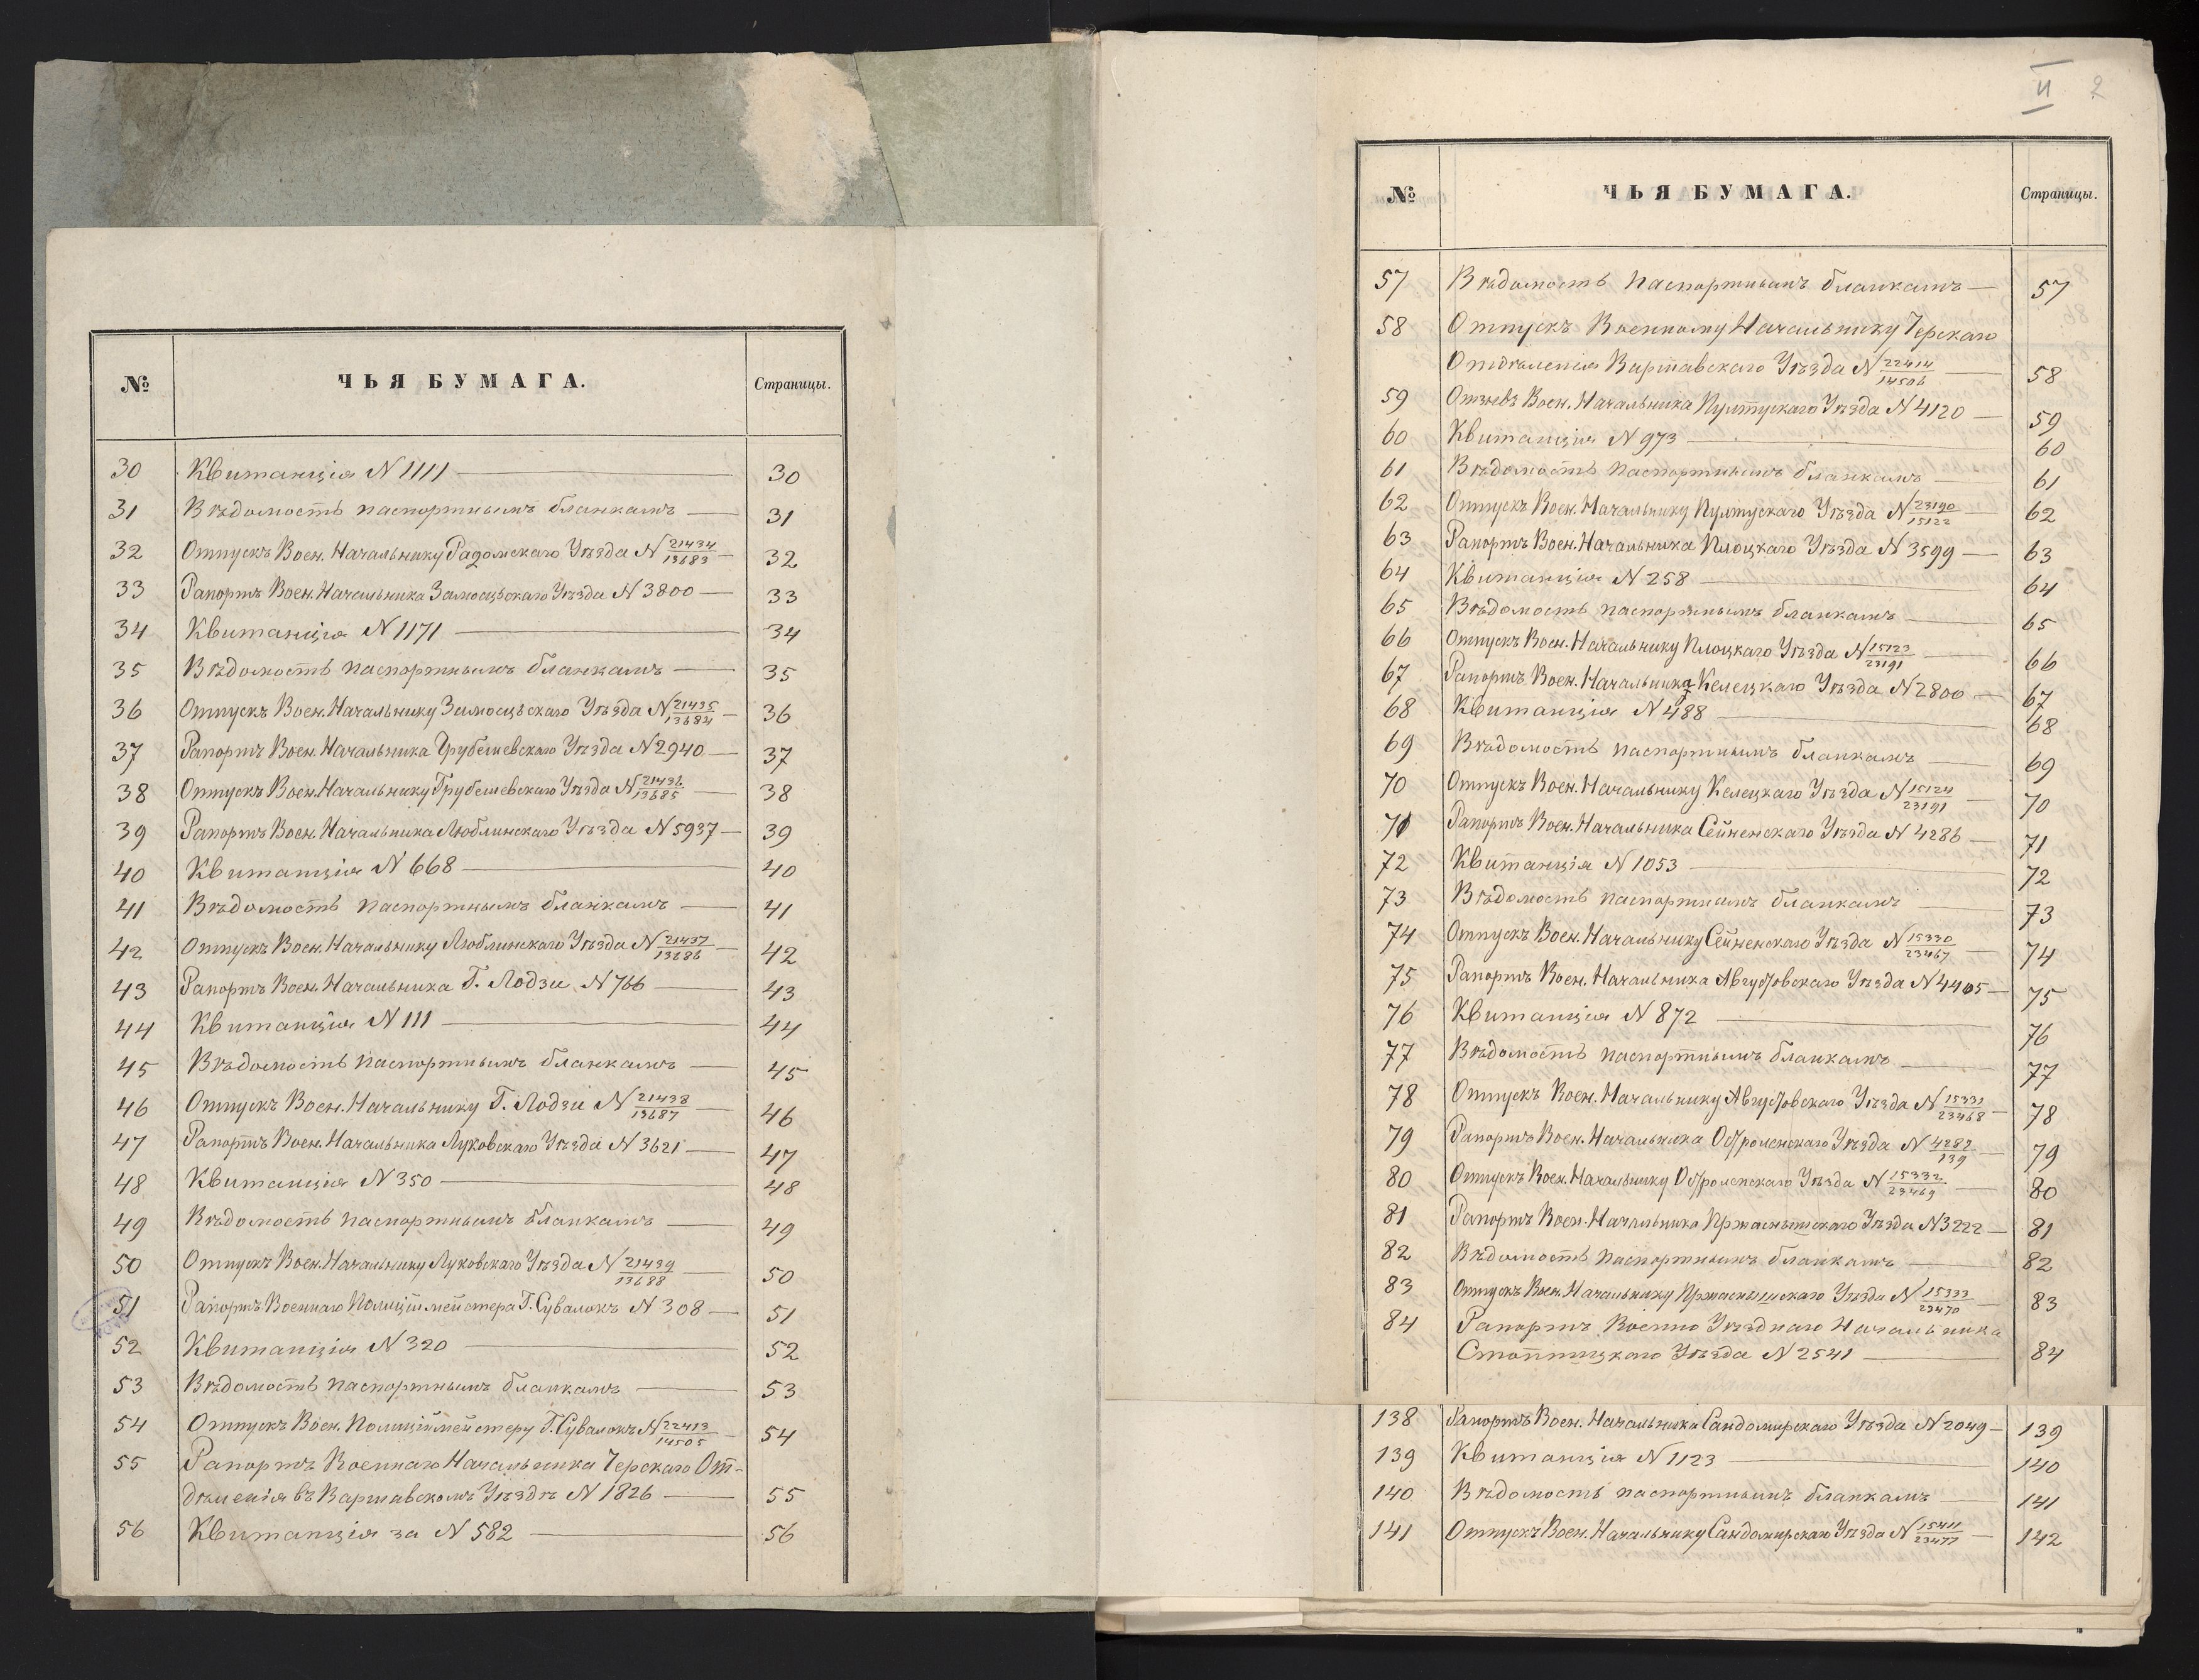 № ЧЬЯ БУМАГА. Страницы.
30 Квитанція N 1111 — 30
31 Вѣдомость паспортнымъ бланкамъ — 31
32 Отпускъ Воен. Начальнику Радомскаго Уѣзда N 21434/13683 — 32
33 Рапортъ Воен. Начальника Замосцьскаго Уѣзда N 3800 — 33
34 Квитанція N 1171 — 34
35 Вѣдомость паспортнымъ бланкамъ — 35
36 Отпускъ Воен. Начальнику Замосцьскаго Уѣзда N 21435/13684 — 36
37 Рапортъ Воен. Начальника Грубешевскаго Уѣзда N 2940 — 37
38 Отпускъ Воен. Начальнику Грубешевскаго Уѣзда N 21436/13685 — 38
39 Рапортъ Воен. Начальника Люблинскаго Уѣзда N 5937 — 39
40 Квитанція N 668 — 40
41 Вѣдомость паспортнымъ бланкамъ — 41
42 Отпускъ Воен. Начальнику Люблинскаго Уѣзда N 21437/13686 — 42
43 Рапортъ Воен. Начальника Г. Лодзи N 766 — 43
44 Квитанція N 111 — 44
45 Вѣдомость паспортнымъ бланкамъ — 45
46 Отпускъ Воен. Начальнику Г. Лодзи N 21438/13687 — 46
47 Рапортъ Воен. Начальника Луковскаго Уѣзда N 3621 — 47
48 Квитанція N 350 — 48
49 Вѣдомость паспортнымъ бланкамъ — 49
50 Отпускъ Воен. Начальнику Луковскаго Уѣзда N 21439/13688 — 50
51 Рапортъ Военнаго Полиціймейстера Г. Сувалокъ N 308 — 51
52 Квитанція N 320 — 52
53 Вѣдомость паспортнымъ бланкамъ — 53
54 Отпускъ Воен. Полиціймейстеру Г. Сувалокъ N 22413/14505 — 54
55 Рапортъ Военнаго Начальника Черскаго От-
дѣленія въ Варшавскомъ Уѣздѣ N 1826 — 55
56 Квитанція за N 582 — 56
II 2
№ ЧЬЯ БУМАГА. Страницы.
57 Вѣдомость паспортнымъ бланкамъ — 57
58 Отпускъ Военному Начальнику Черскаго
Отдѣленія Варшавскаго Уѣзда N 22414/14506 — 58
59 Отзывъ Воен. Начальника Пултускаго Уѣзда N 4120 — 59
60 Квитанція N 973 — 60
61 Вѣдомость паспортнымъ бланкамъ — 61
62 Отпускъ Воен. Начальнику Пултускаго Уѣзда N 23190/15122 — 62
63 Рапортъ Воен. Начальника Плоцкаго Уѣзда N 3599 — 63
64 Квитанція N 258 — 64
65 Вѣдомость паспортнымъ бланкамъ — 65
66 Отпускъ Воен. Начальнику Плоцкаго Уѣзда N 15123/23191 — 66
67 Рапортъ Воен. Начальника Келецкаго Уѣзда N 2800 — 67
68 Квитанція N 488 — 68
69 Вѣдомость паспортнымъ бланкамъ — 69
70 Отпускъ Воен. Начальнику Келецкаго Уѣзда N 15124/23191 — 70
71 Рапортъ Воен. Начальника Сейненскаго Уѣзда N 4286 — 71
72 Квитанція N 1053 — 72
73 Вѣдомость паспортнымъ бланкамъ — 73
74 Отпускъ Воен. Начальнику Сейненскаго Уѣзда N 15330/23467 — 74
75 Рапортъ Воен. Начальника Августовскаго Уѣзда N 4405 — 75
76 Квитанція N 872 — 76
77 Вѣдомость паспортнымъ бланкамъ — 77
78 Отпускъ Воен. Начальнику Августовскаго Уѣзда N 15331/23468 — 78
79 Рапортъ Воен. Начальника Остроленскаго Уѣзда N 4282/139 — 79
80 Отпускъ Воен. Начальнику Остроленскаго Уѣзда N 15332/23469 — 80
81 Рапортъ Воен. Начальника Пржаснышскаго Уѣзда N 3222 — 81
82 Вѣдомость паспортнымъ бланкамъ — 82
83 Отпускъ Воен. Начальнику Пржаснышскаго Уѣзда N 15333/23470 — 83
84 Рапортъ Военно Уѣзднаго Начальника
Стопницкаго Уѣзда N 2541 — 84
138 Рапортъ Воен. Начальника Сандомирскаго Уѣзда N 2049 — 139
139 Квитанція N 1123 — 140
140 Вѣдомость паспортнымъ бланкамъ — 141
141 Отпускъ Воен. Начальнику Сандомирскаго Уѣзда N 15411/23477 — 142